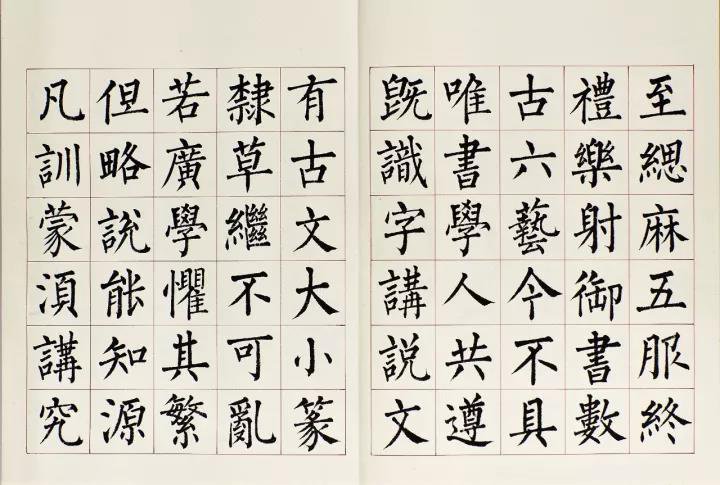 至緦麻五服終
禮樂射御書數
古六藝今不具
唯書學人共遵
既識字講說文
有古文大小篆
隸草繼不可亂
若廣學懼其繁
但略說能知源
凡訓蒙須講究